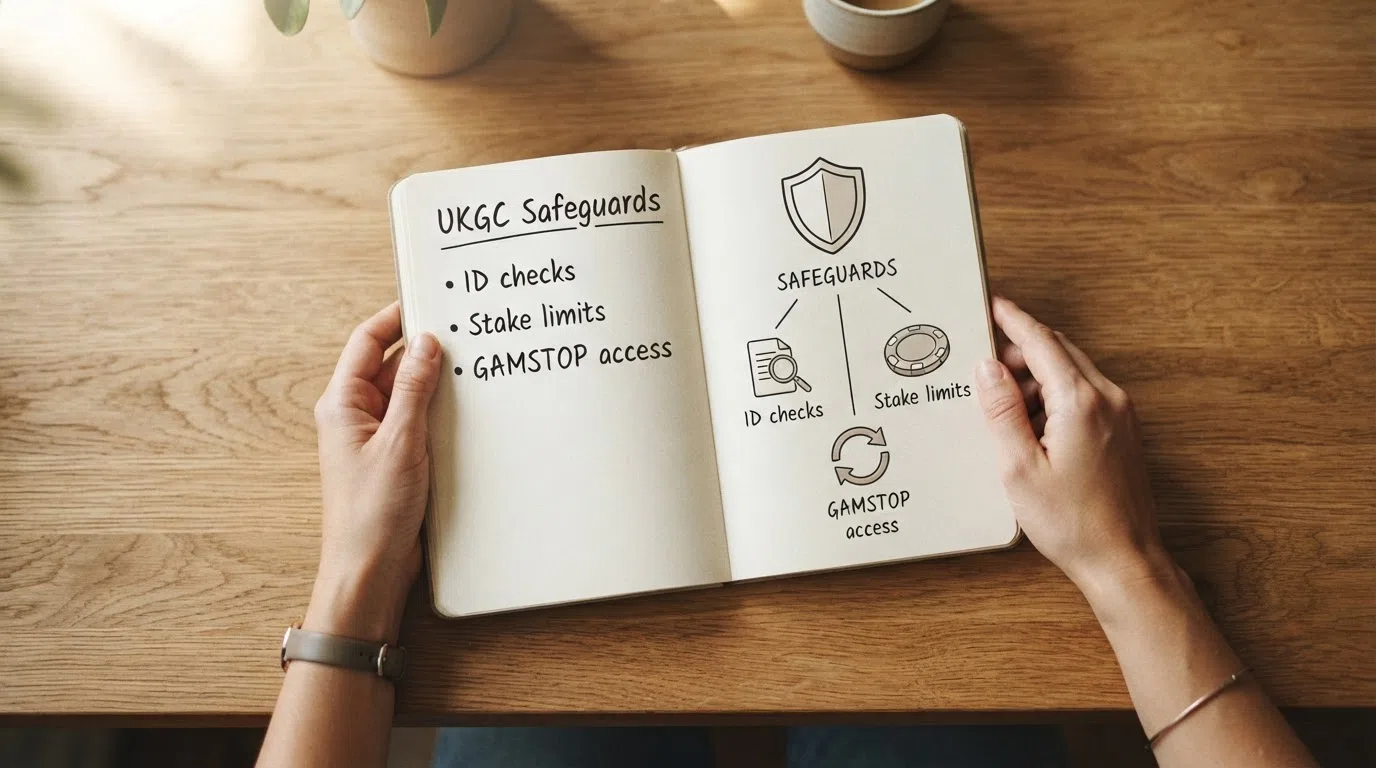 UKGC Safeguards
• ID checks
• Stake limits
• GAMSTOP access
SAFEGUARDS
ID checks
Stake limits
GAMSTOP
access